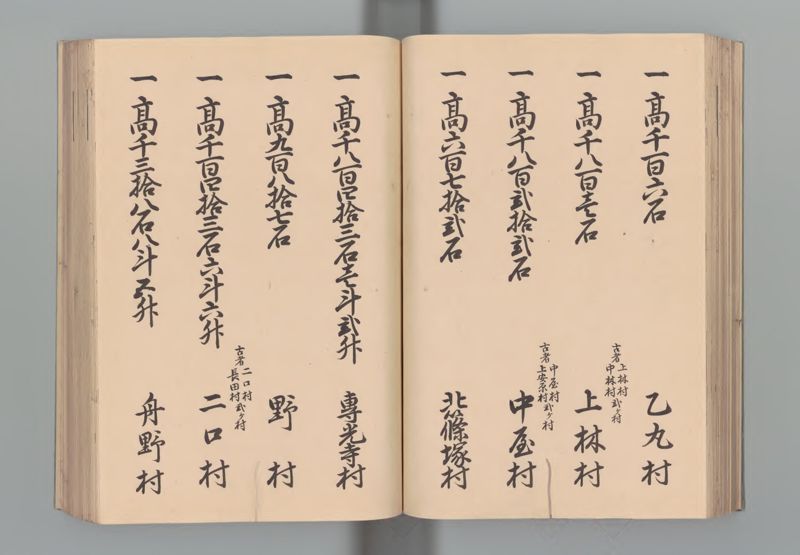 一高千百六石 乙丸村
一高千八百壱石 上林村
古者上林村
中林村弐ケ村
一高千八百弐拾弐石 中屋村
古者中屋村
上安原村弐ケ村
一高六百七拾弐石 北篠塚村
一高千八百四拾三石壱斗弐升 専光寺村
一高九百八拾七石 野村
一高千百四拾三石六斗六升 二口村
古者二口村
長田村弐ケ村
一高千三拾八石八斗五升 舟野村